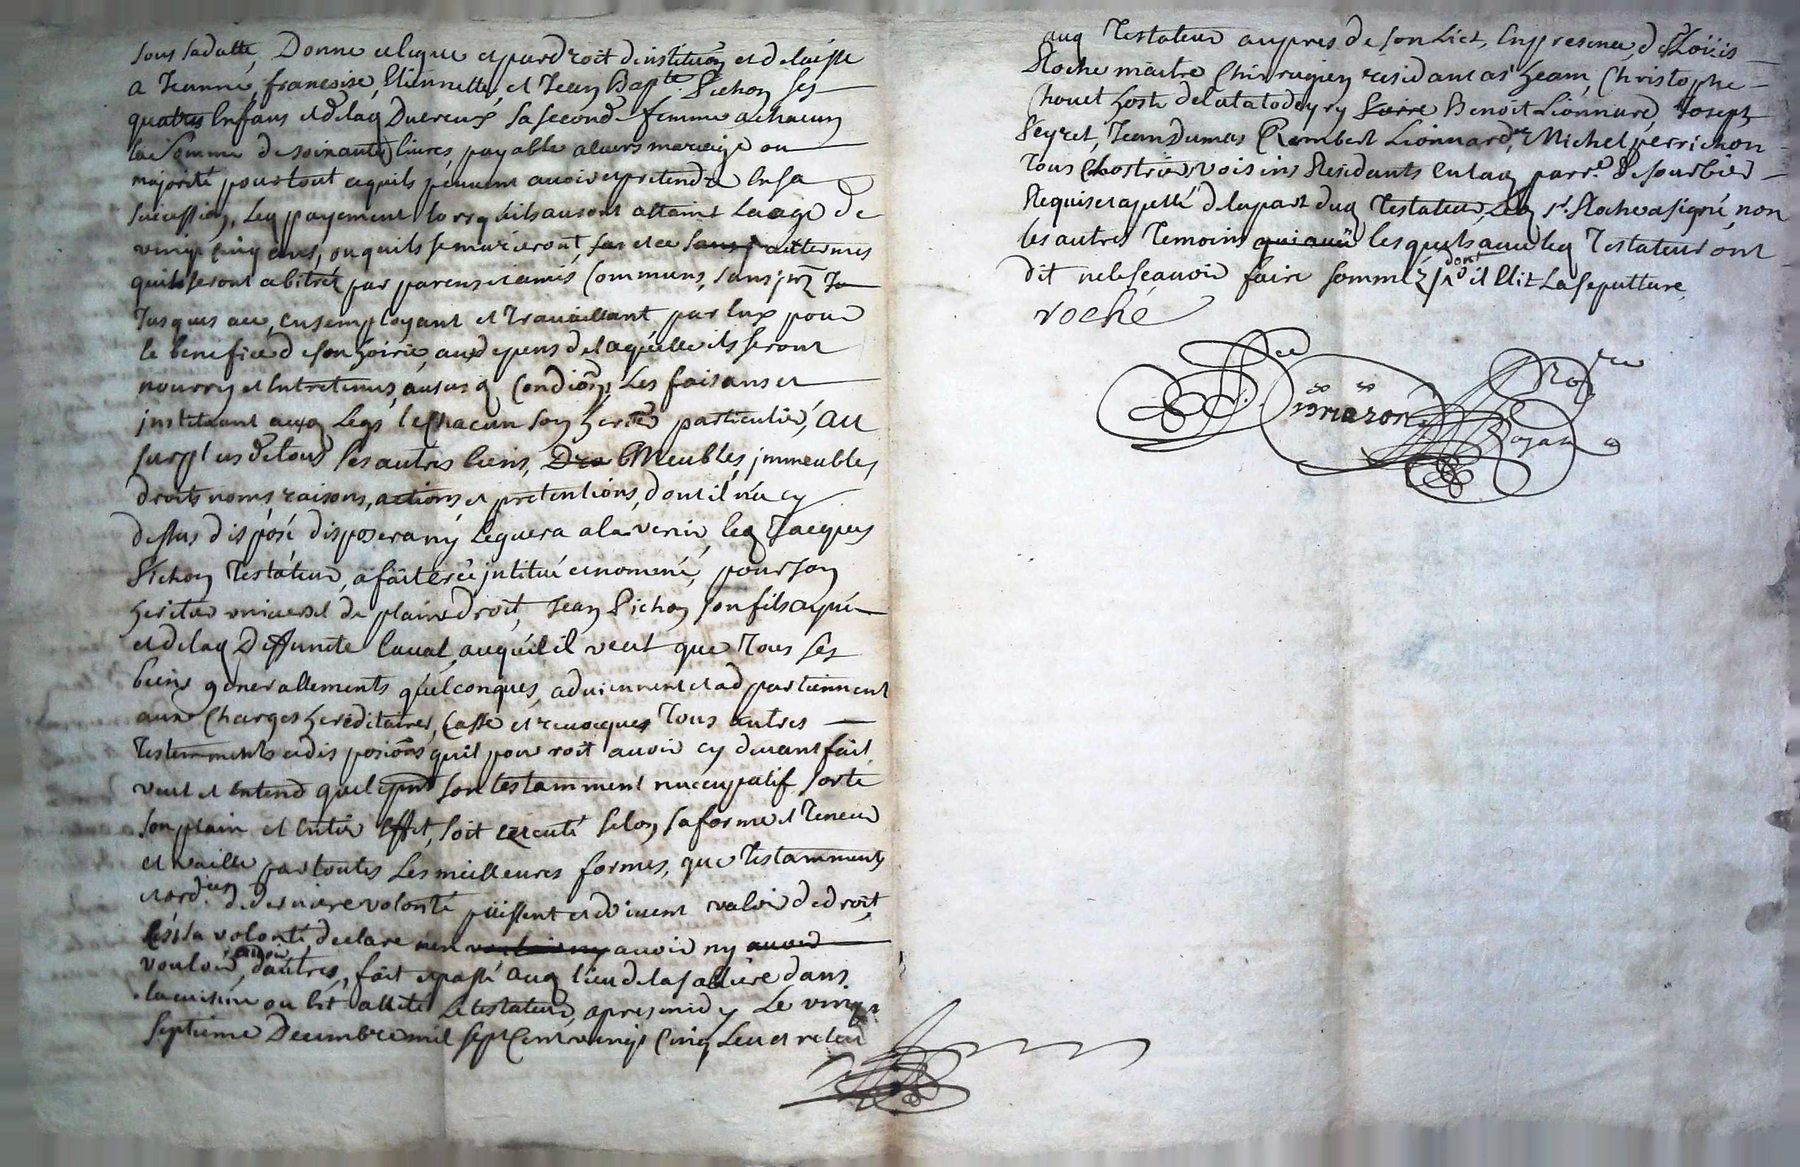 sous sa datte, Donne et legue et par droit dinstitu͠on et delaisse
a Jeanne, francoise, Etiennette, et Jean Bapte. Pichon ses
quatres Enfans et de laq Ducreux sa seconde femme a chacun
la somme de soixante livres, payable a leurs mariage ou
majorité pour tout ce quils peuvent avoir et pretendre en sa
succession, Leq payement lorsq ils auront attaint Laage de
vingt cinq ans, ou quils se marieront, sas et ce aux termes
quils seront abitrez par parens et amis Communs, sans jnz Ju
Jusques au, en semployant et travaillant par eux pour
le benefice de son hoirie, aux depens de laquelle ils seront
nourry et Entretenus, ausus q Condi͠ons Les faisans et
jnstituant auxq Legs les chacun son heritier particulier, au
surplus de tous ses autres biens, Meubles, jmmeubles,
droits noms, raisons, actions et pretentions, dont il n'a cy
dessus disposé disposera ny Leguera a lavenir, leq Jacques
Pichon Testateur, a fait créé jntitué et nommé, pour son
heritier universel de plain droit, Jean Pichon son fils ayné
et de laq Deffuncte Laval, auquel il veut que Tous ses
biens generallements quelconques, adviennent et ad partiennent
aux Charges hereditaires, Casse et revocques Tous autres
Testamments et dis posi͠ons quil pour roit avoir cy devant fait
veut et entend que le pnt son testamment nuncupatif sorte
son plain et entier Effet, soit executé selon sa forme et Teneur
et vaille par toutes Les meilleures formes, que Testamments
et ord.ces de derniere volonté puissent et doivent valoir de droit,
Cest sa volonté, declare nen avoir ny
vouloir, dautres, fait et passé auq lieu de la saliere dans
la cuisine ou est allité Le testateur, apres midy Le vingt
septieme Decembre mil sept Cent vingt Cinq Leu et releu
auq Testateur aupres de son Lict, En presence, de Sr Loüis
Roche maitre Chirurgien residant a st heam, Christophe
Chouet hoste de la Benoit Lionnard, Joseph
Peyret, Jean Dumas Rembert Lionnard, et Michel perrichon
Tous voisins Residants en laq parr.e de sourbier
Requis et apellé de la part duq Testateur, Leq sr. Roche a signé, non
les autres Temoins lesquels avec leq Testateur ont
dit ne le scavoir faire sommez / dont il Elit La sepulture
roche